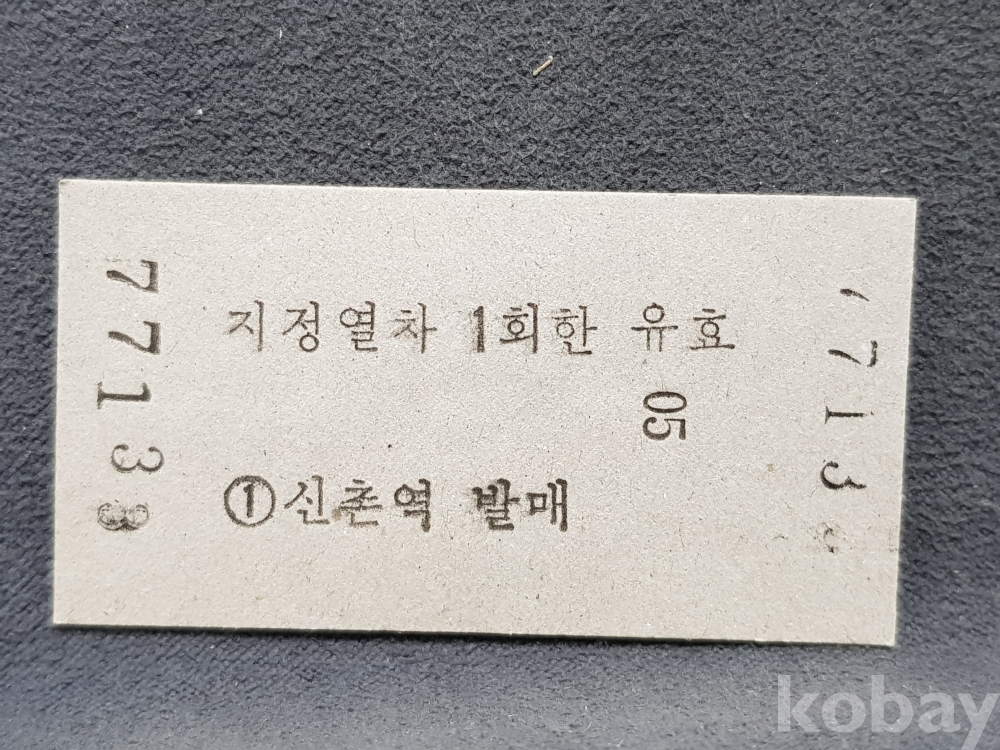 77133
지정열차 1회한 유효
05
①신촌역 발매
713
kobay